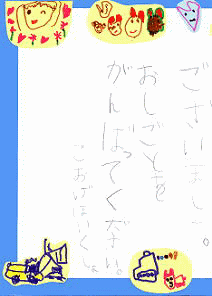 ございました。
おしごとを
がんばってください。
こおげほいくしょ